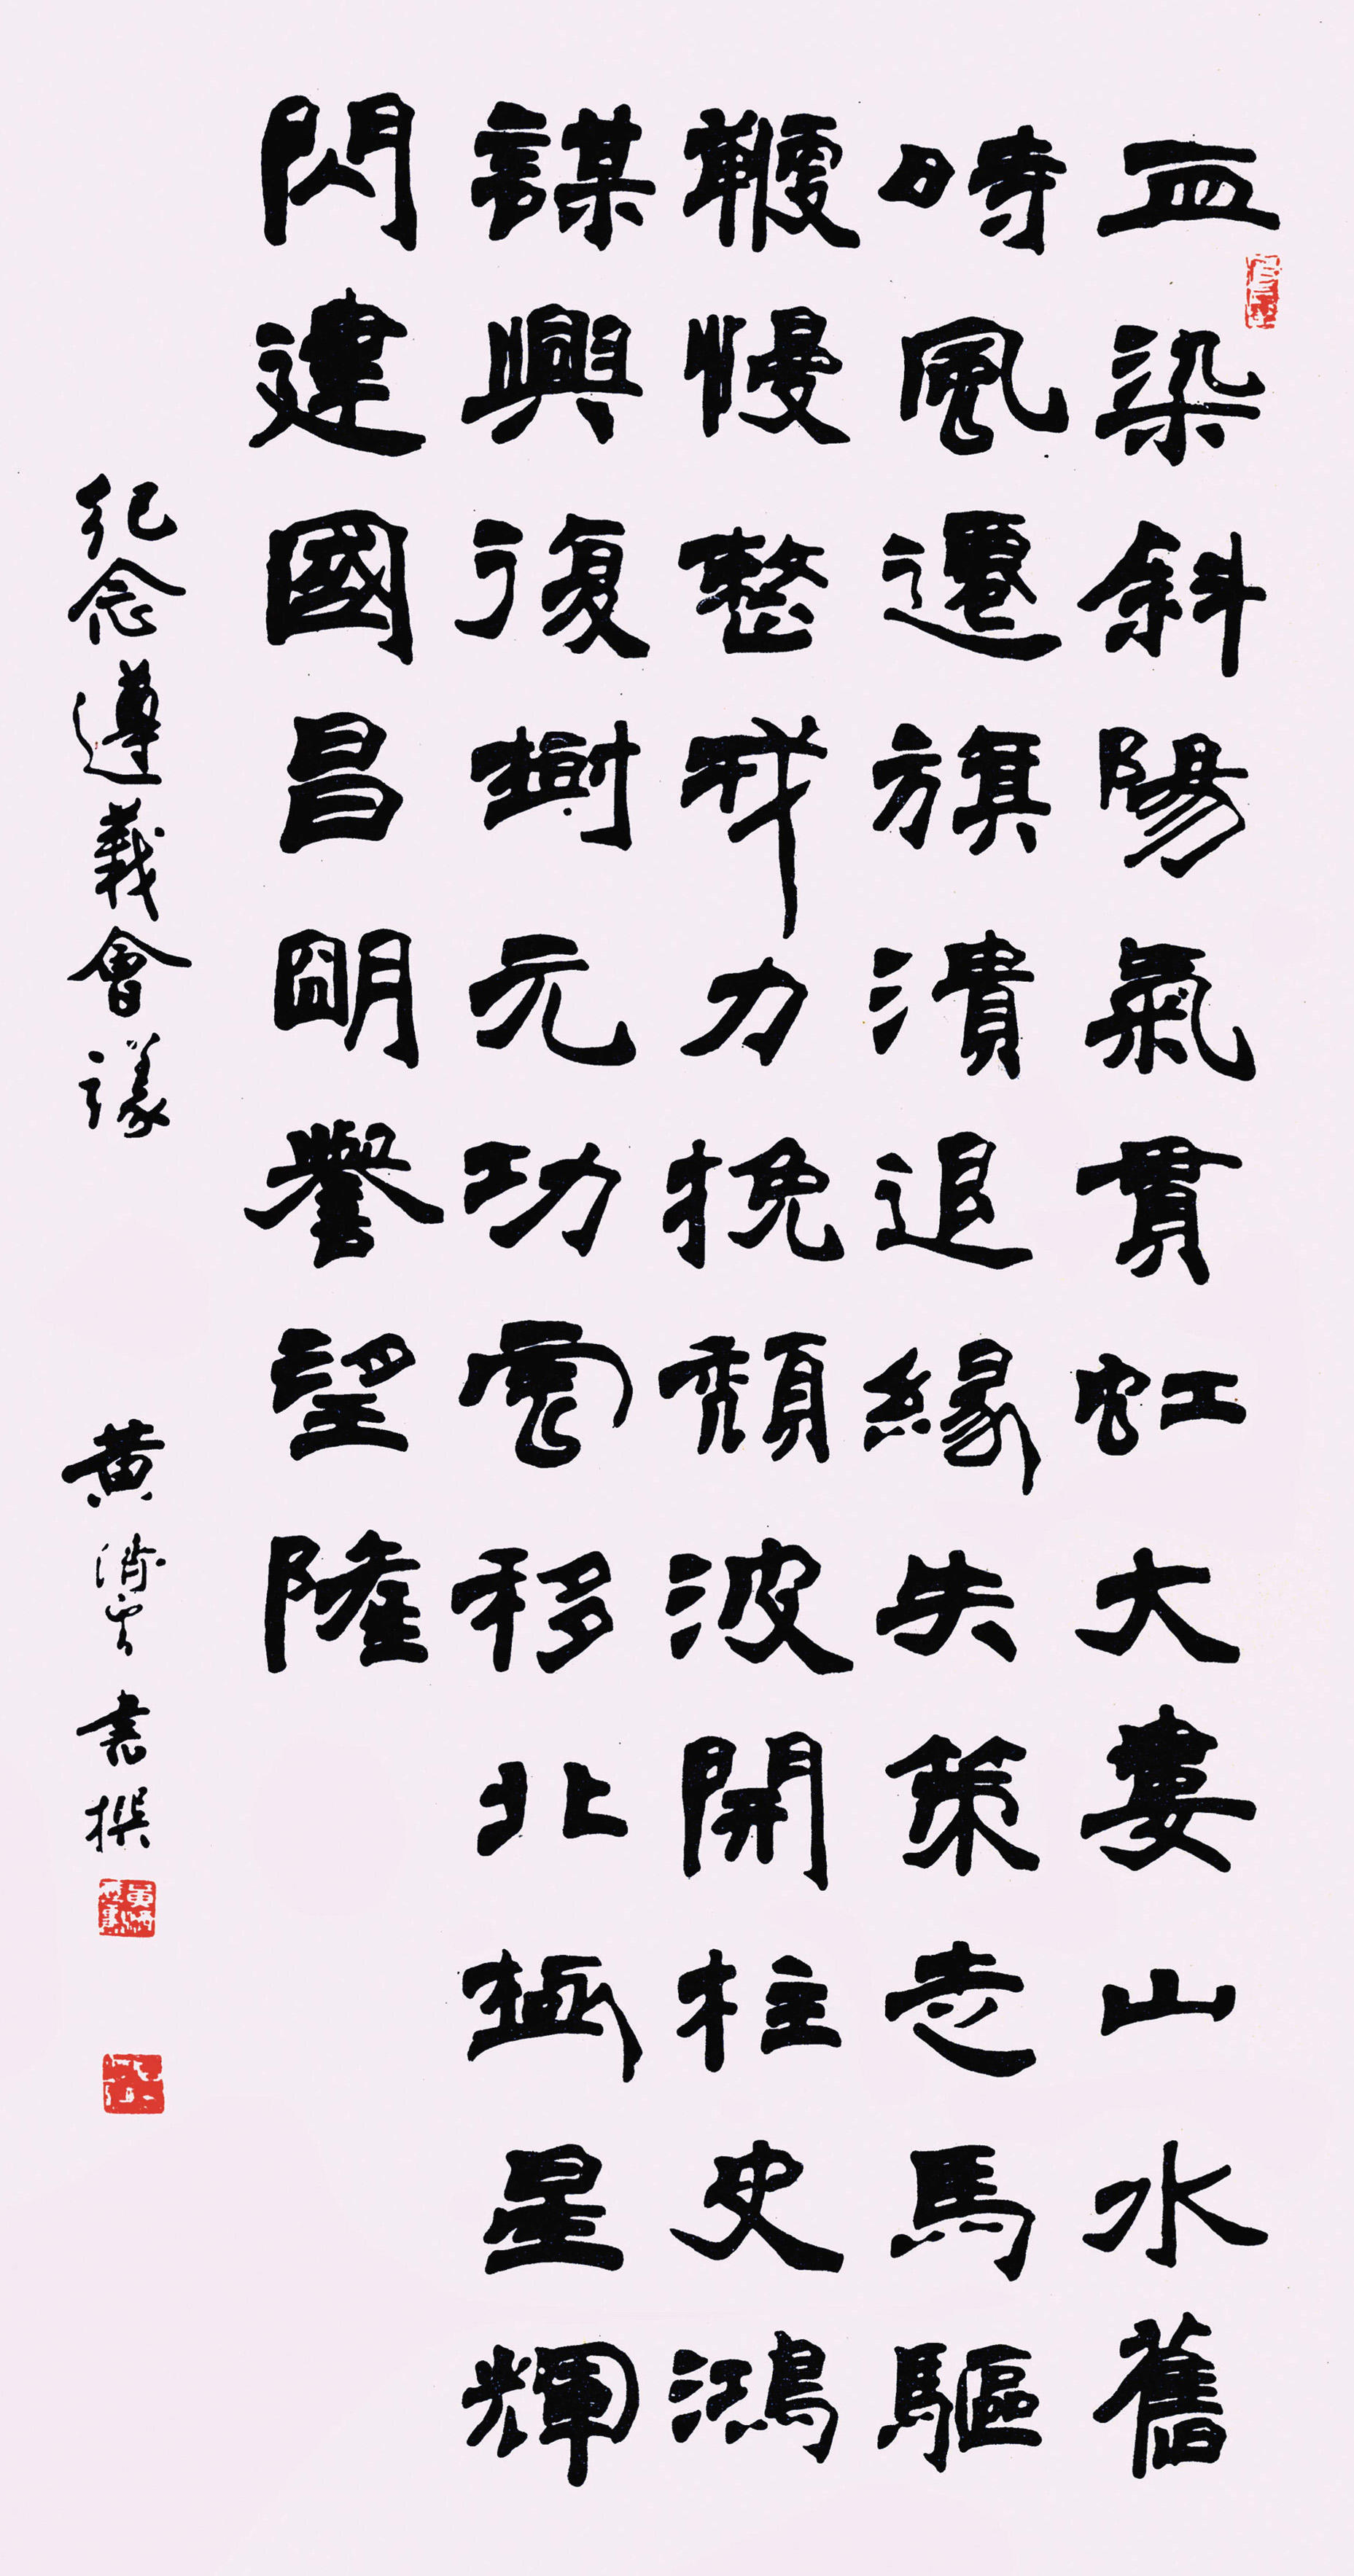 血染斜陽氣貫虹大婁山水舊
時風遷旗潰退緣失策走馬驅
鞭慢整戎力挽頹波開柱史鴻
謀興復樹元功雲移北極星輝
閃建國昌明譽望隆
紀念遵義會議
黄濟雲書撰